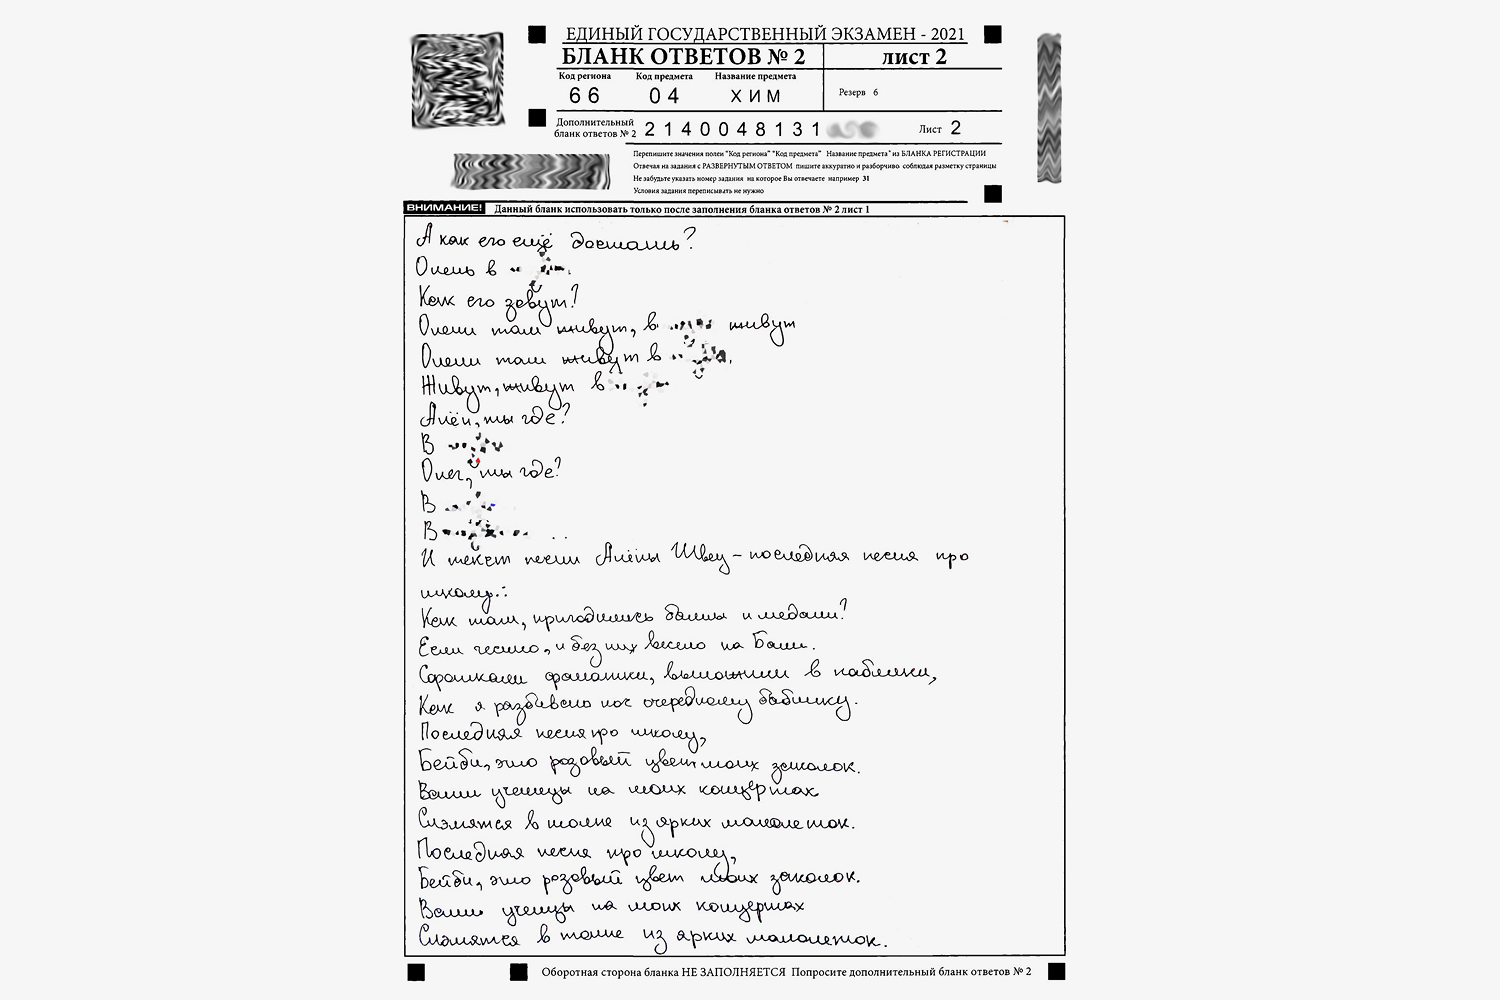 ЕДИНЫЙ ГОСУДАРСТВЕННЫЙ ЭКЗАМЕН - 2021
БЛАНК ОТВЕТОВ № 2 лист 2
Код региона Код предмета Название предмета
66 04 ХИМ Резерв 6
Дополнительный бланк ответов № 2 2140048131 Лист 2
Перепишите значения полей "Код региона" "Код предмета" Название предмета" из БЛАНКА РЕГИСТРАЦИИ
Отвечая на задания с РАЗВЕРНУТЫМ ОТВЕТОМ пишите аккуратно и разборчиво соблюдая разметку страницы
Не забудьте указать номер задания на которое Вы отвечаете например 31
Условия задания переписывать не нужно
ВНИМАНИЕ! Данный бланк использовать только после заполнения бланка ответов № 2 лист 1
А как его ещё достать?
Олень в
Как его зовут?
Олени там живут, в живут
Олени там живут в
Живут, живут в
Ален, ты где?
В
Олег, ты где?
В
В
И текст песни Алёны Швец – последняя песня про
школу:
Как там, пригодились баллы и медали?
Если честно, и без них весело на Бали.
Сфоткали фанатики, выложили в паблики,
Как я разбиваю нос очередному бабнику.
Последняя песня про школу,
Бейби, это розовый цвет моих заколок.
Ваши ученицы на моих концертах
Слэмятся в толпе из ярких малолеток.
Последняя песня про школу,
Бейби, это розовый цвет моих заколок.
Ваши ученицы на моих концертах
Слэмятся в толпе из ярких малолеток.
Оборотная сторона бланка НЕ ЗАПОЛНЯЕТСЯ Попросите дополнительный бланк ответов № 2